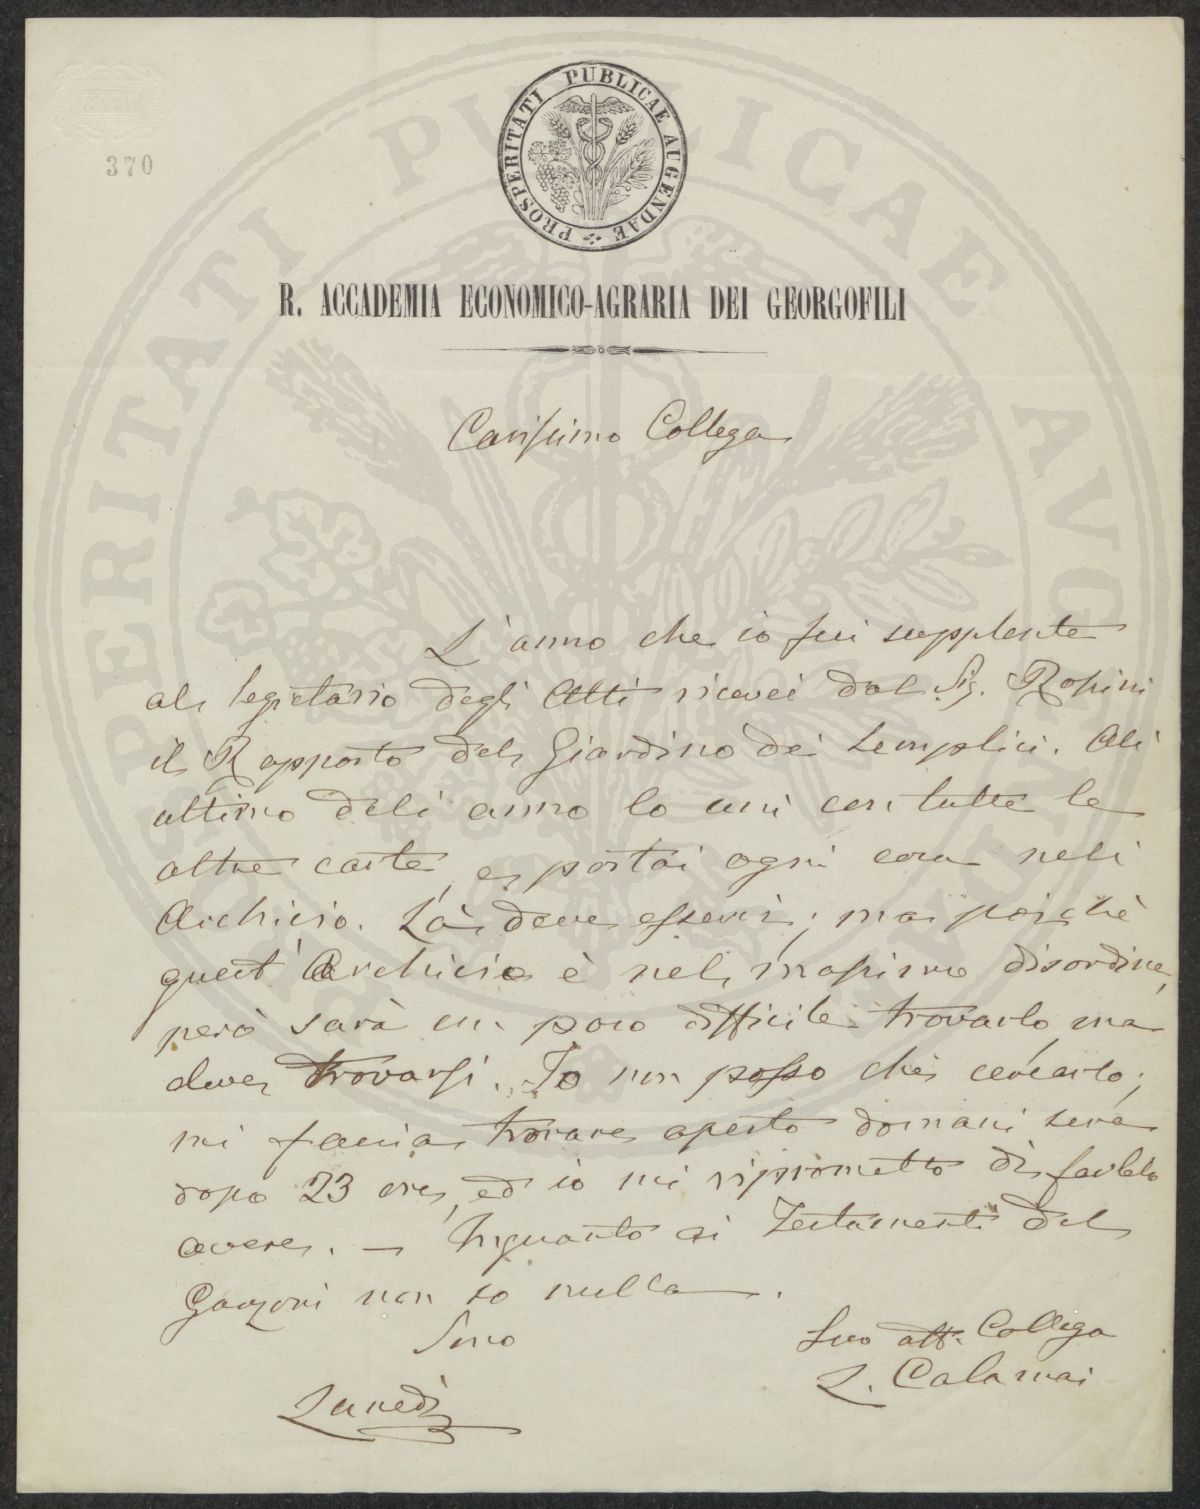 370
PROSPERITATI PUBLICAE AUGENDAE
R. ACCADEMIA ECONOMICO-AGRARIA DEI GEORGOFILI
Carissimo Collega
L'anno che io fui supplente
al Segretario degli Atti ricevei dal Sig. Rosini
il Rapporto del Giardino dei Semplici. All
ultimo dell anno lo unii con tutte le
altre carte, e portai ogni cosa nell
Archivio. Là deve esservi; ma poichè
quest'Archivio è nel massimo disordine,
però sarà un poco difficile trovarlo, ma
deve trovarsi. Io non posso che cercarlo;
mi faccia trovare aperto domani sera
dopo 23 ore, ed io mi riprometto di farglielo
avere. — Inquanto ai Testamenti del
Ganzoni non so nulla.
Sono
Suo aff. Collega
L. Calamai
Lunedì